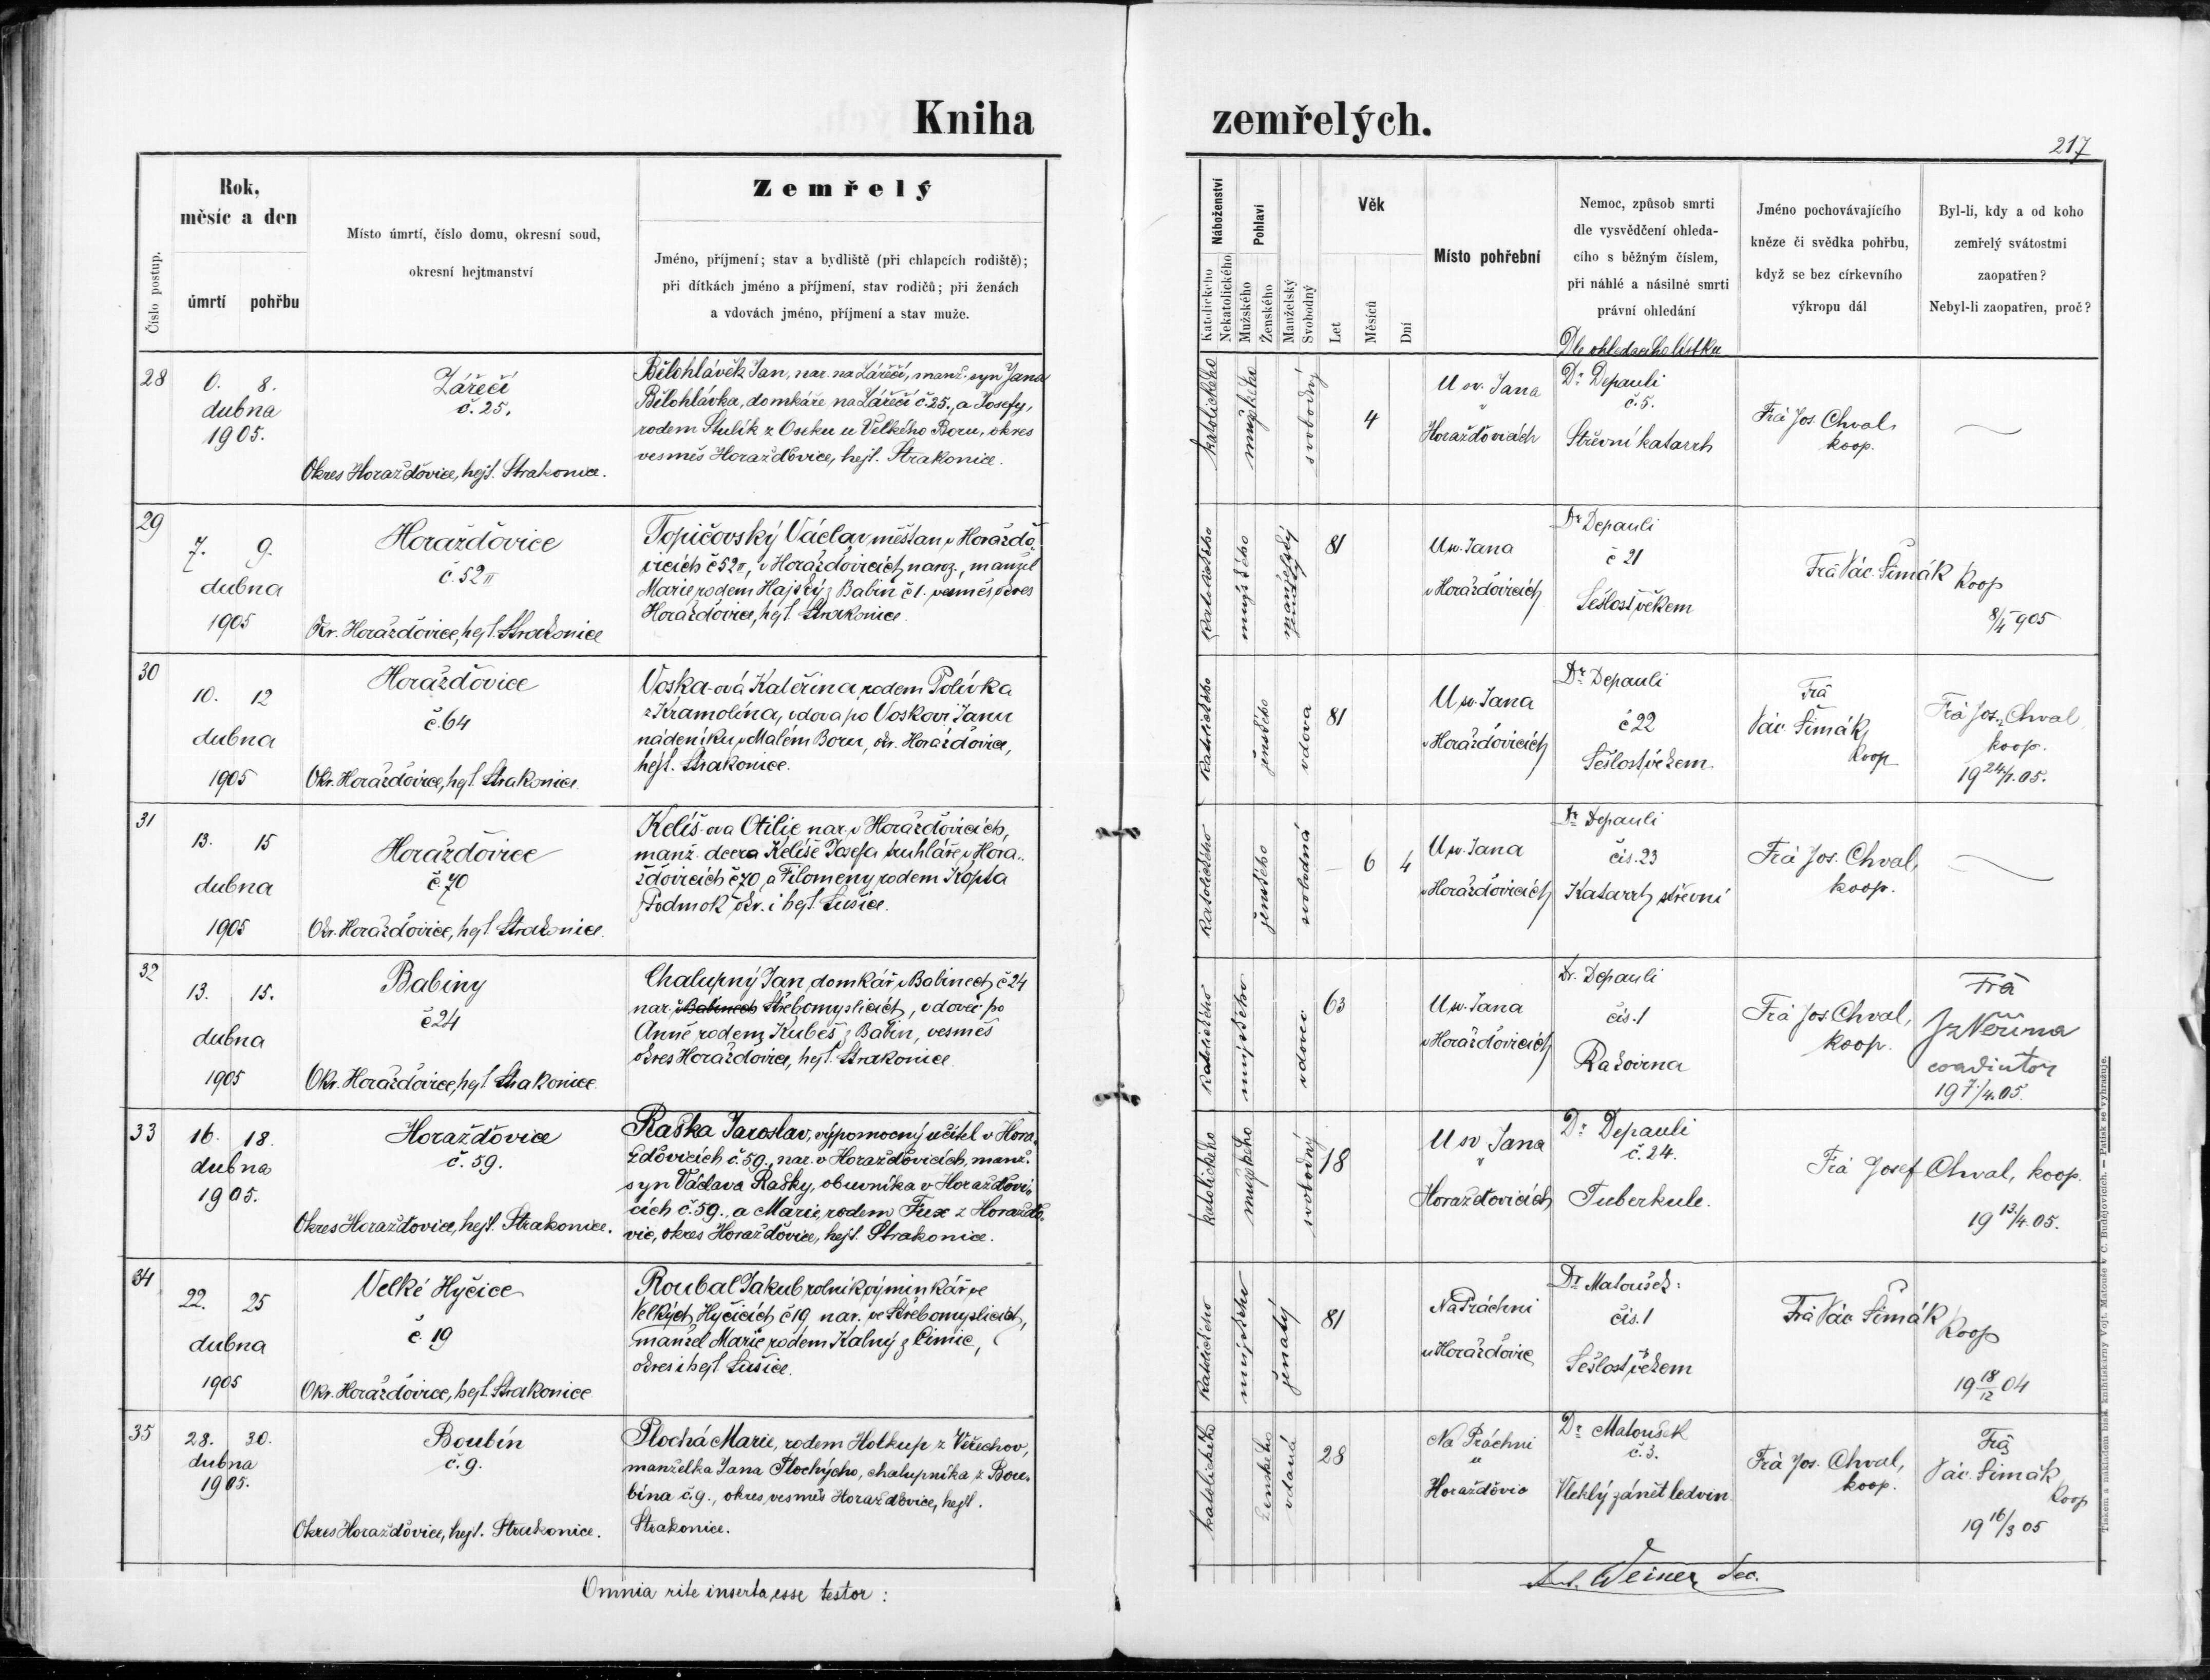 Kniha zemřelých.
217
Číslo postup.
Rok,
měsíc a den
úmrtí pohřbu
Místo úmrtí, číslo domu, okresní soud,
okresní hejtmanství
Zemřelý
Jméno, příjmení; stav a bydliště (při chlapcích rodiště);
při dítkách jméno a příjmení, stav rodičů; při ženách
a vdovách jméno, příjmení a stav muže.
Náboženství
Katolického
Nekatolického
Pohlaví
Mužského
Ženského
Manželský
Svobodný
Věk
Let
Měsíců
Dní
Místo pohřební
Nemoc, způsob smrti
dle vysvědčení ohleda-
cího s běžným číslem,
při náhlé a násilné smrti
právní ohledání
Jméno pochovávajícího
kněze či svědka pohřbu,
když se bez církevního
výkropu dál
Byl-li, kdy a od koho
zemřelý svátostmi
zaopatřen?
Nebyl-li zaopatřen, proč?
Dle ohledacího lístku
28
6. 8.
dubna
1905.
Zářečí
č. 25.
Okres Horažďovice, hejt. Strakonice.
Bělohlávek Jan, nar. na Zářečí, manž. syn Jana
Bělohlávka, domkáře na Zářečí č. 25., a Josefy,
rodem Stulík z Oseku u Velkého Boru, okres
vesměs Horažďovice, hejt. Strakonice.
katolického
mužského
svobodný
4
U sv. Jana
v
Horažďovicích
Dr. Depauli
č. 5.
Střevní katarrh
Frà Jos. Chval,
koop.
29
7. 9.
dubna
1905
Horažďovice
č. 52 II
Okr. Horažďovice, hejt. Strakonice
Topičovský Václav měšťan v Horažďo-
vicích č 52 II, v Horažďovicích naroz., manžel
Marie rodem Hajský z Babín č 1. vesměs okres
Horažďovice, hejt. Strakonice.
katolického
mužského
manželský
ženatý
81
U sv. Jana
v Horažďovicích
Dr Depauli
č 21
Sešlost věkem
Frà Vác. Šimák Koop
8/4 905
30
10. 12
dubna
1905
Horažďovice
č. 64
Okr. Horažďovice, hejt. Strakonice.
Voska-ová Kateřina rodem Polívka
z Kramolína, vdova po Voskovi Janu
nádeníku v Malém Boru, okr. Horažďovice,
hejt. Strakonice.
katolického
ženského
vdova
81
U sv. Jana
v Horažďovicích
Dr. Depauli
č 22
Sešlost věkem
Frà
Vác. Šimák,
Koop
Frà Jos. Chval
koop.
19 24/1. 05.
31
13. 15
dubna
1905
Horažďovice
č. 70
Okr. Horažďovice, hejt. Strakonice.
Keliš-ova Otilie nar. v Horažďovicích,
manž. dcera Keliše Josefa truhláře v Hora-
žďovicích č 70 a Filomeny rodem Kopta
z Podmok okr. i hejt. Sušice.
katolického
ženského
svobodná
— 6 4
U sv. Jana
v Horažďovicích
Dr. Depauli
čís. 23
Katarrh střevní
Frà Jos. Chval,
koop.
32
13. 15.
dubna
1905
Babiny
č 24
Okr. Horažďovice, hejt. Strakonice.
Chalupný Jan domkář v Babinech č 24
nar. v Babinech Střebomyslicích, vdovec po
Anně rodem Kubeš z Babin, vesměs
okres Horažďovice, hejt. Strakonice.
katolického
mužského
vdovec
63
U sv. Jana
v Horažďovicích
Dr. Depauli
čís. 1
Rakovina
Frà Jos. Chval,
koop.
Frà
coadiutor
19 7/4. 05.
33
16. 18.
dubna
1905.
Horažďovice
č. 59.
Okres Horažďovice, hejt. Strakonice.
Raška Jaroslav, výpomocný učitel v Hora-
žďovicích č. 59., nar. v Horažďovicích, manž.
syn Václava Rašky, obuvníka v Horažďovi-
cích č. 59., a Marie, rodem Fux z Horažďo-
vic, okres Horažďovice, hejt. Strakonice.
katolického
mužského
svobodný
18
U sv Jana
v
Horažďovicích
Dr. Depauli
č. 24.
Tuberkule.
Frà Josef Chval, koop.
19 13/4. 05.
34
22. 25
dubna
1905
Velké Hyčice
č. 19
Okr. Horažďovice, hejt. Strakonice
Roubal Jakub rolník výminkář ve
Velkých Hyčicích č 19 nar. ve Střebomyslicích,
manžel Marie rodem Kalný z Čimic,
okres i hejt. Sušice.
katolického
mužského
ženatý
81
Na Práchni
u Horažďovic
Dr Matoušek:
čís. 1
Sešlost věkem
Frà Vác Šimák Koop
19 18/12 04
35
28. 30.
dubna
1905.
Boubín
č. 9.
Okres Horažďovice, hejt. Strakonice.
Plochá Marie, rodem Holkup z Věřechov,
manželka Jana Plochýho, chalupníka z Bou-
bína č. 9., okres vesměs Horažďovice, hejt.
Strakonice.
katolického
ženského
vdaná
28
Na Práchni
u
Horažďovic
Dr. Matoušek
č. 3.
Vleklý zánět ledvin
Frà Jos. Chval,
koop.
Frà
Vác. Šimák
Koop
19 16/3 05
Omnia rite inserta esse testor:
Ant. Weiner, dec.
Tiskem a nákladem bisk. knihtiskárny Vojt. Matouše v Č. Budějovicích. — Patisk se vyhražuje.